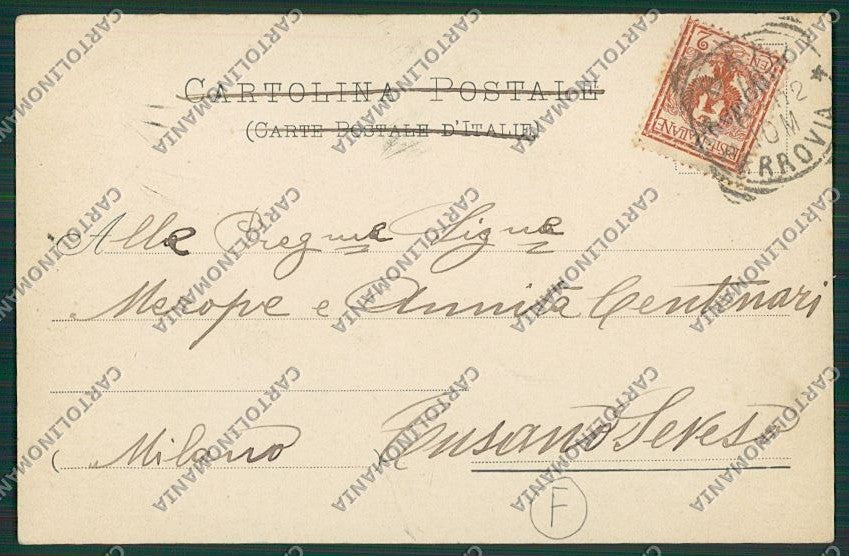 CARTOLINA POSTALE
(CARTE POSTALE D'ITALIE)
POSTE ITALIANE
2
FERROVIA
Alle Pregme Signe
Merope e Annita Centenari
(Milano) Cusano Seveso
F
CARTOLINOMANIA